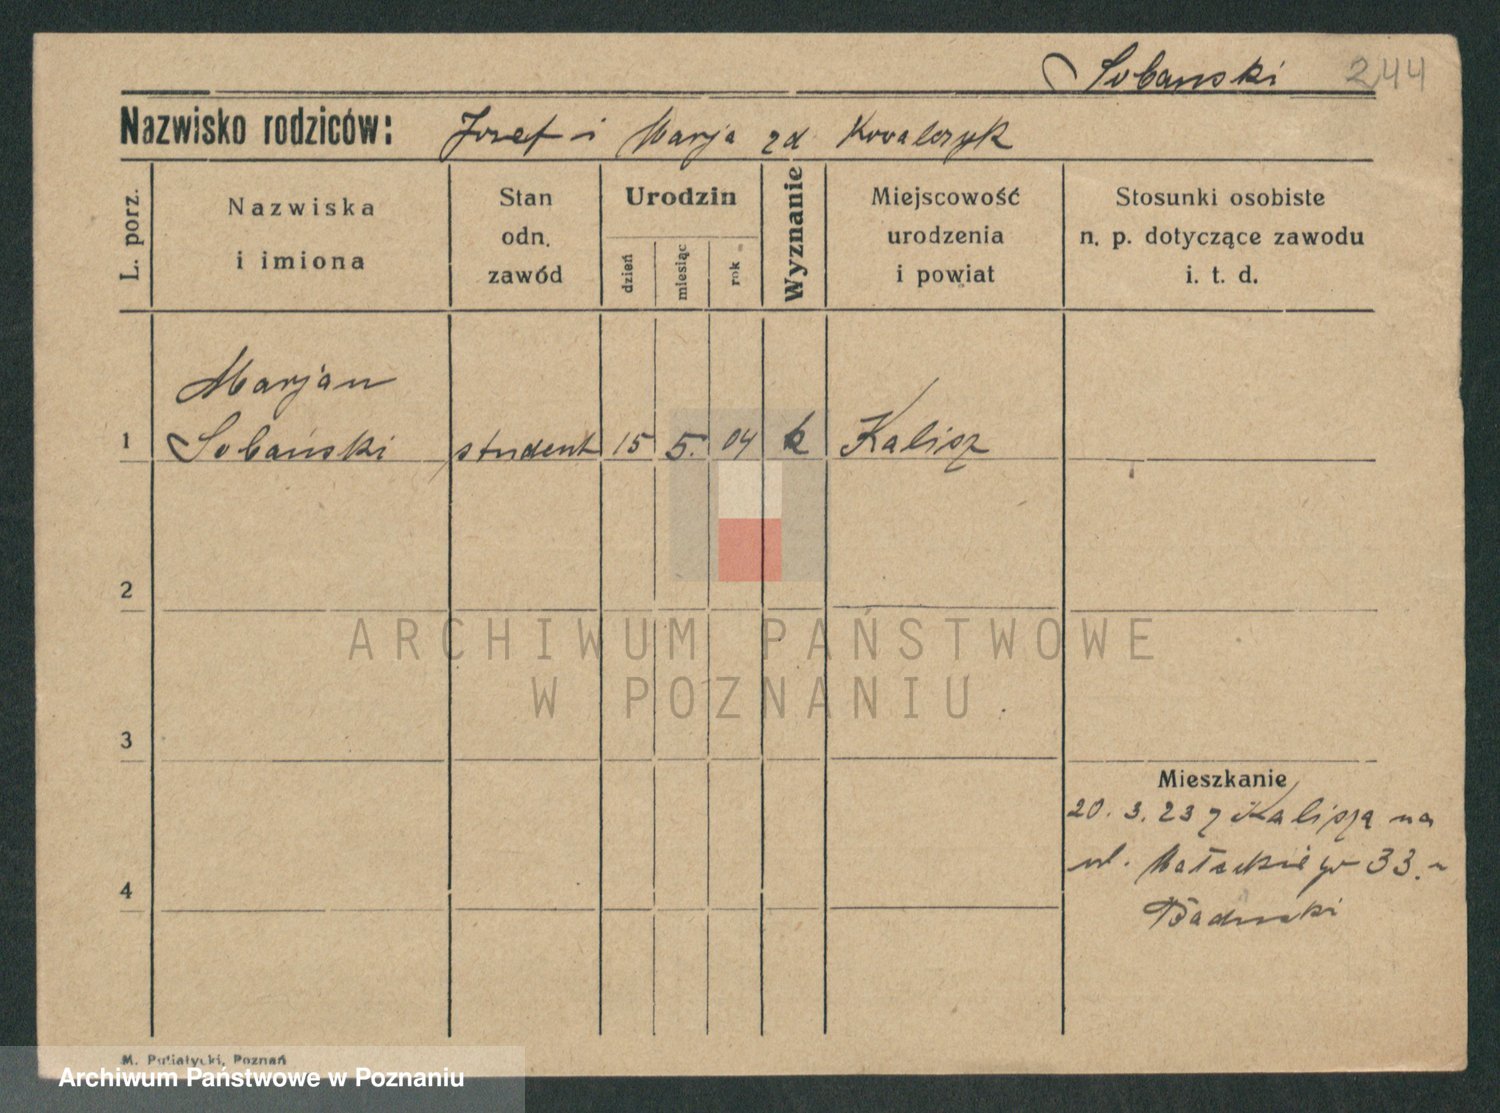 Sobanski 244
Nazwisko rodziców: Jozef i Marja zd Kowalczyk
L. porz.
Nazwiska
i imiona
Stan
odn.
zawód
Urodzin
dzień
miesiąc
rok
Wyznanie
Miejscowość
urodzenia
i powiat
Stosunki osobiste
n. p. dotyczące zawodu
i. t. d.
Marjan
1 Sobański student 15 5. 04 k Kalisz
2
ARCHIWUM PAŃSTWOWE
W POZNANIU
3
Mieszkanie
20. 3. 23 z Kalisza na
ul. 33.
4
M. Putiatycki, Poznań
Archiwum Państwowe w Poznaniu